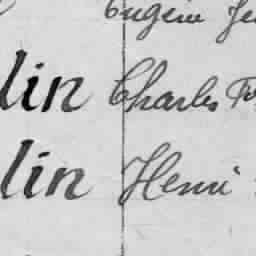 Eugène
lin Charles
lin Henri